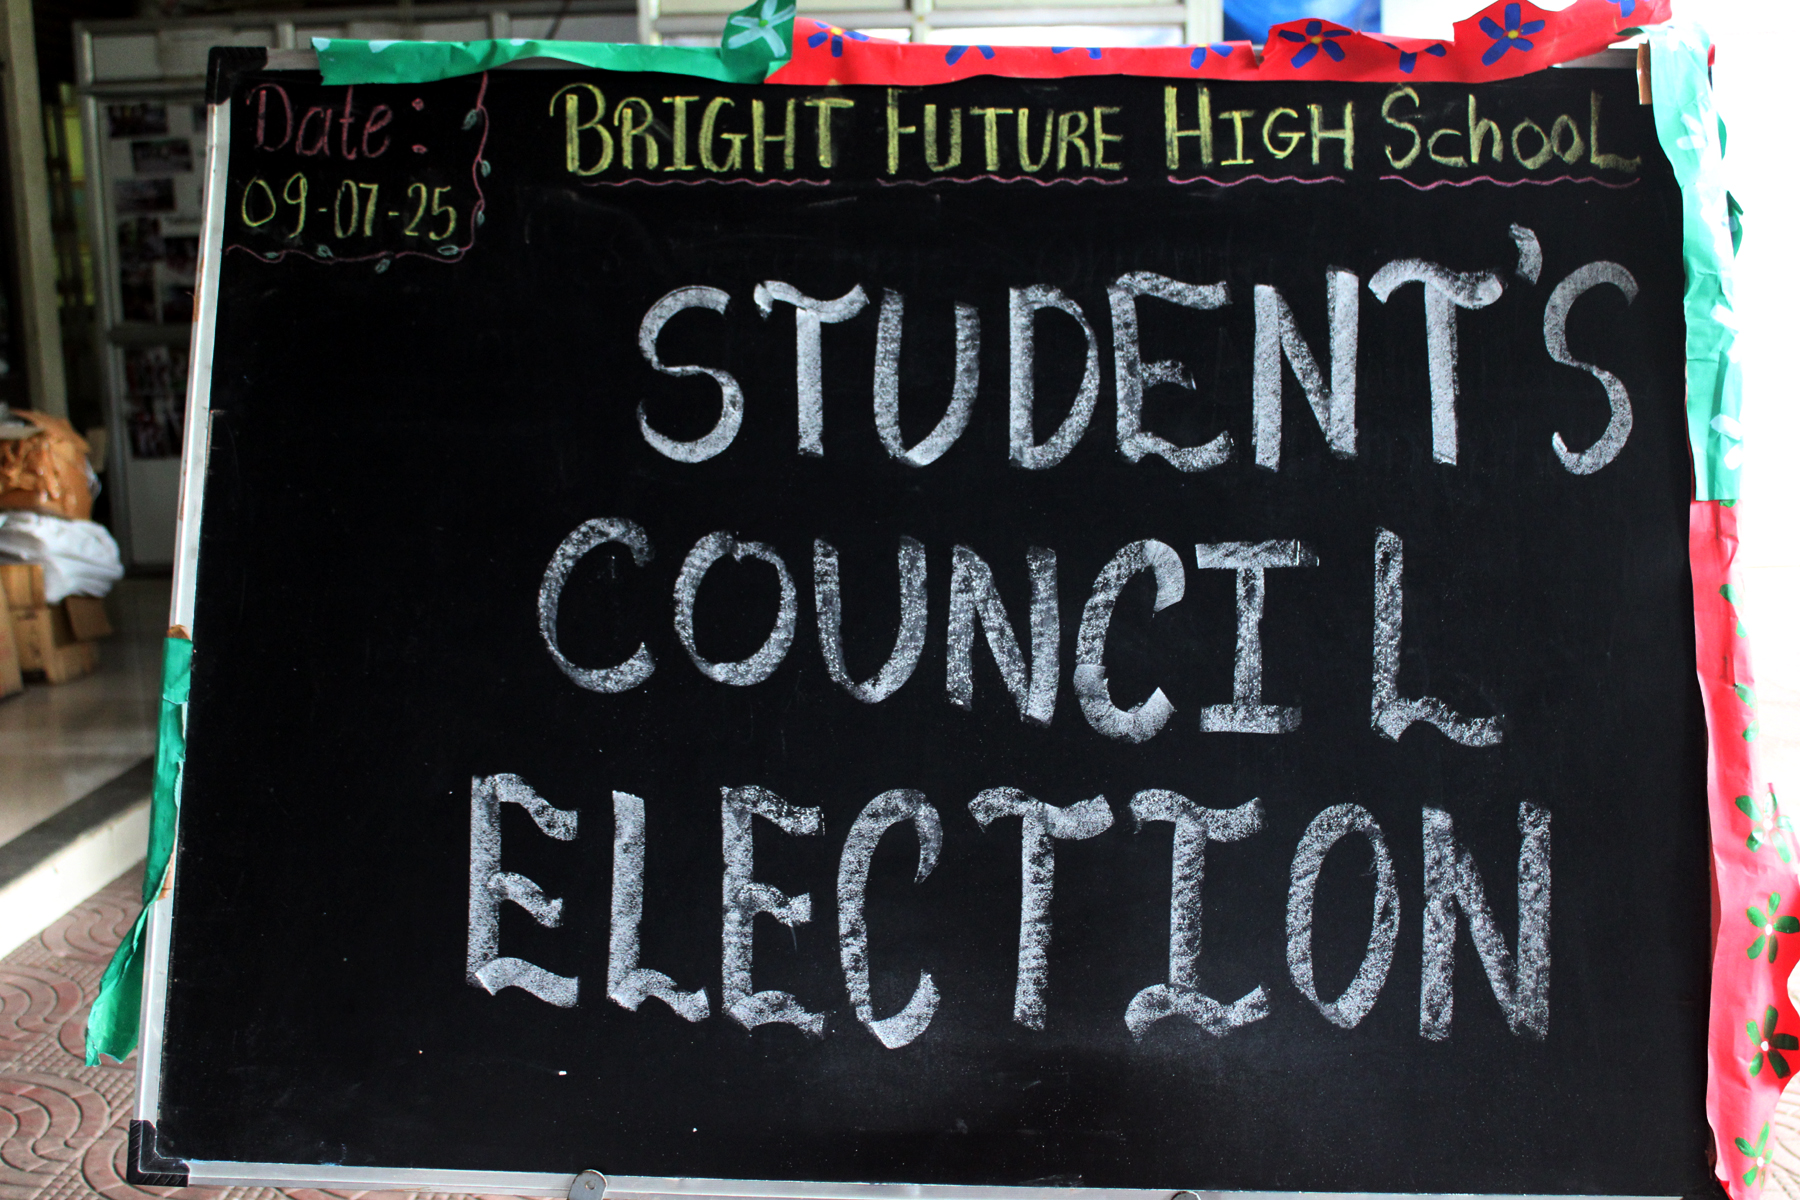 Date:
09-07-25
BRIGHT FUTURE HIGH SCHOOL
STUDENT'S
COUNCIL
ELECTION